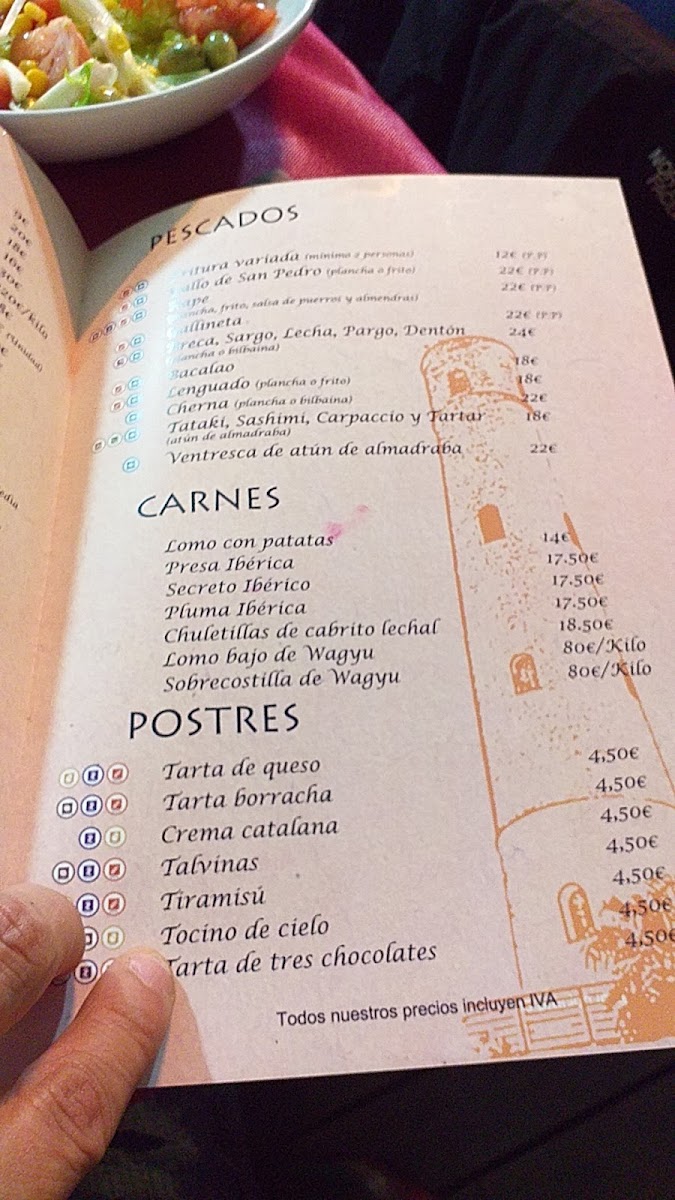 9€
20€
18€
16€
30€
20€/Kilo
8€
unidad)
edia
PESCADOS
ritura variada (mínima 2 personas) 12€ (P.P)
allo de San Pedro (plancha o frito) 22€ (P.P)
ape 22€ (P.P)
ancha, frito, salsa de puerros y almendras)
allineta 22€ (P.P)
reca, Sargo, Lecha, Pargo, Dentón 24€
plancha o bilbaina)
Bacalao 18€
Lenguado (plancha o frito) 18€
Cherna (plancha o bilbaina) 22€
Tataki, Sashimi, Carpaccio y Tartar 18€
(atún de almadraba)
Ventresca de atún de almadraba 22€
CARNES
Lomo con patatas 14€
Presa Ibérica 17.50€
Secreto Ibérico 17.50€
Pluma Ibérica 17.50€
Chuletillas de cabrito lechal 18.50€
Lomo bajo de Wagyu 80€/Kilo
Sobrecostilla de Wagyu 80€/Kilo
POSTRES
Tarta de queso 4,50€
Tarta borracha 4,50€
Crema catalana 4,50€
Talvinas 4,50€
Tiramisú 4,50€
Tocino de cielo 4,50€
Tarta de tres chocolates 4,50€
Todos nuestros precios incluyen IVA